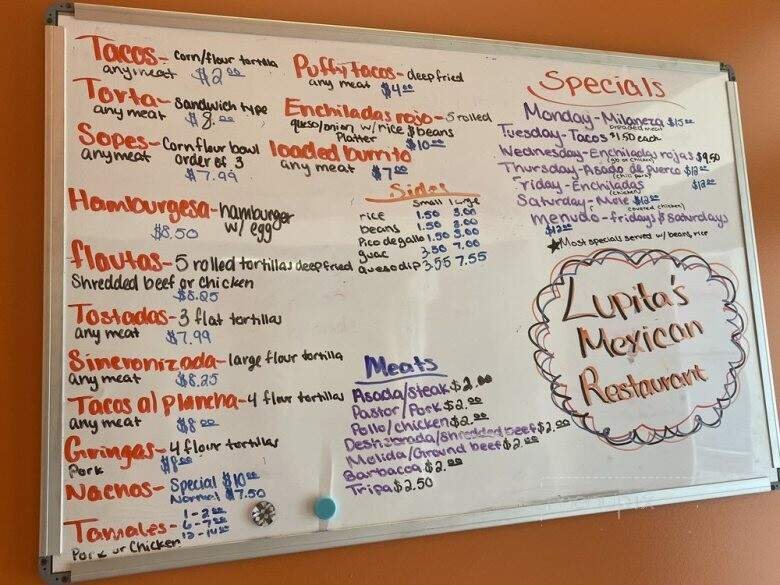 Tacos- Corn/flour tortilla
any meat $2.00
Torta- Sandwich type
any meat $8.00
Sopes- Corn flour bowl
any meat order of 3
$7.99
Hamburgesa- hamburger
$8.50 w/ egg
flautas- 5 rolled tortillas deep fried
Shredded beef or Chicken
$8.25
Tostadas- 3 flat tortillas
any meat $7.99
Sincronizada- large flour tortilla
any meat $8.25
Tacos al plancha- 4 flour tortillas
any meat $8.00
Gringas- 4 flour tortillas
Pork $8.00
Nachos- Special $10.00
Normal $7.50
Tamales- 1-2.00
6-7.00
Pork or Chicken 12-14.00
Puffy tacos- deep fried
any meat $4.00
Enchiladas rojo- 5 rolled
queso/onion w/ rice $ beans
Platter $10.00
loaded burrito
any meat $7.00
Sides
Small large
rice 1.50 3.00
beans 1.50 3.00
Pico de gallo 1.50 3.00
guac 3.50 7.00
queso dip 3.55 7.55
Meats
Asada/steak $2.00
Pastor/Pork $2.00
Pollo/chicken $2.00
Deshebrada/shredded beef $2.00
Molida/Ground beef $2.00
Barbacoa $2.00
Tripa $2.50
Specials
Monday-Milaneza $15.00
breaded meat
Tuesday-Tacos $1.50 each
Wednesday-Enchiladas rojas $9.50
(gb or chicken)
Thursday-Asado de puerco $12.00
(chili pork)
friday-Enchiladas $12.00
(chicken)
Saturday-Mole $12.00
(covered chicken)
menudo-fridays $ saturdays
$12.00
★Most specials served w/ beans, rice
Lupita's
Mexican
Restaurant